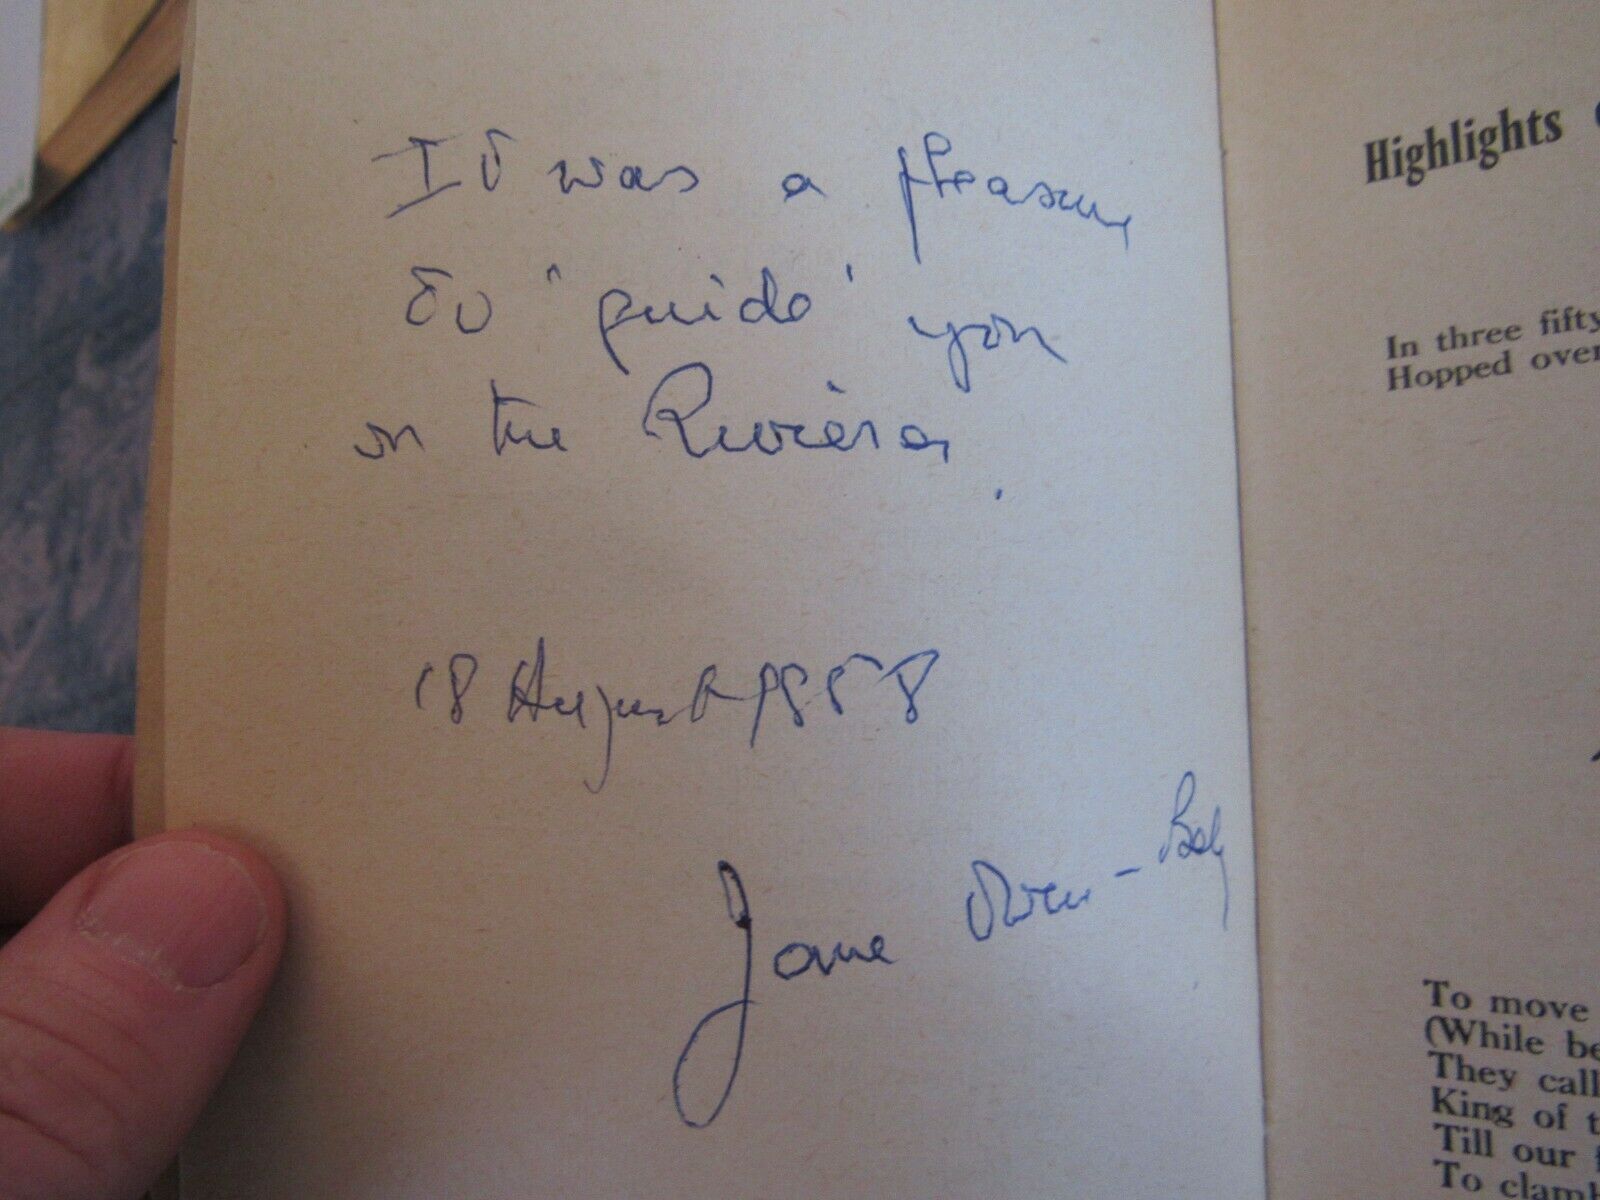 It was a pleasure
to "guide" you
on the Riviera.
18 August 1958
Jane
Highlights
In three fifty
Hopped over
To move
(While be
They call
King of t
Till our f
To clamb